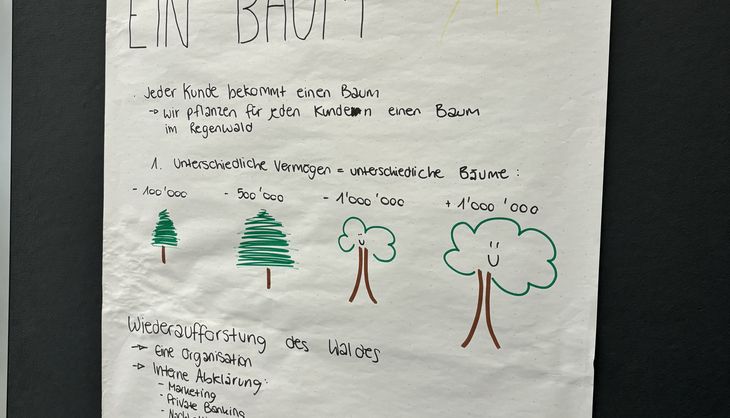 EIN BAUM
. Jeder Kunde bekommt einen Baum
→ wir pflanzen für jeden Kunden einen Baum
im Regenwald
1. Unterschiedliche Vermögen = unterschiedliche Bäume :
- 100'000 - 500'000 - 1'000'000 + 1'000'000
Wiederaufforstung des Waldes
→ Eine Organisation
→ Interne Abklärung:
- Marketing
- Private Banking